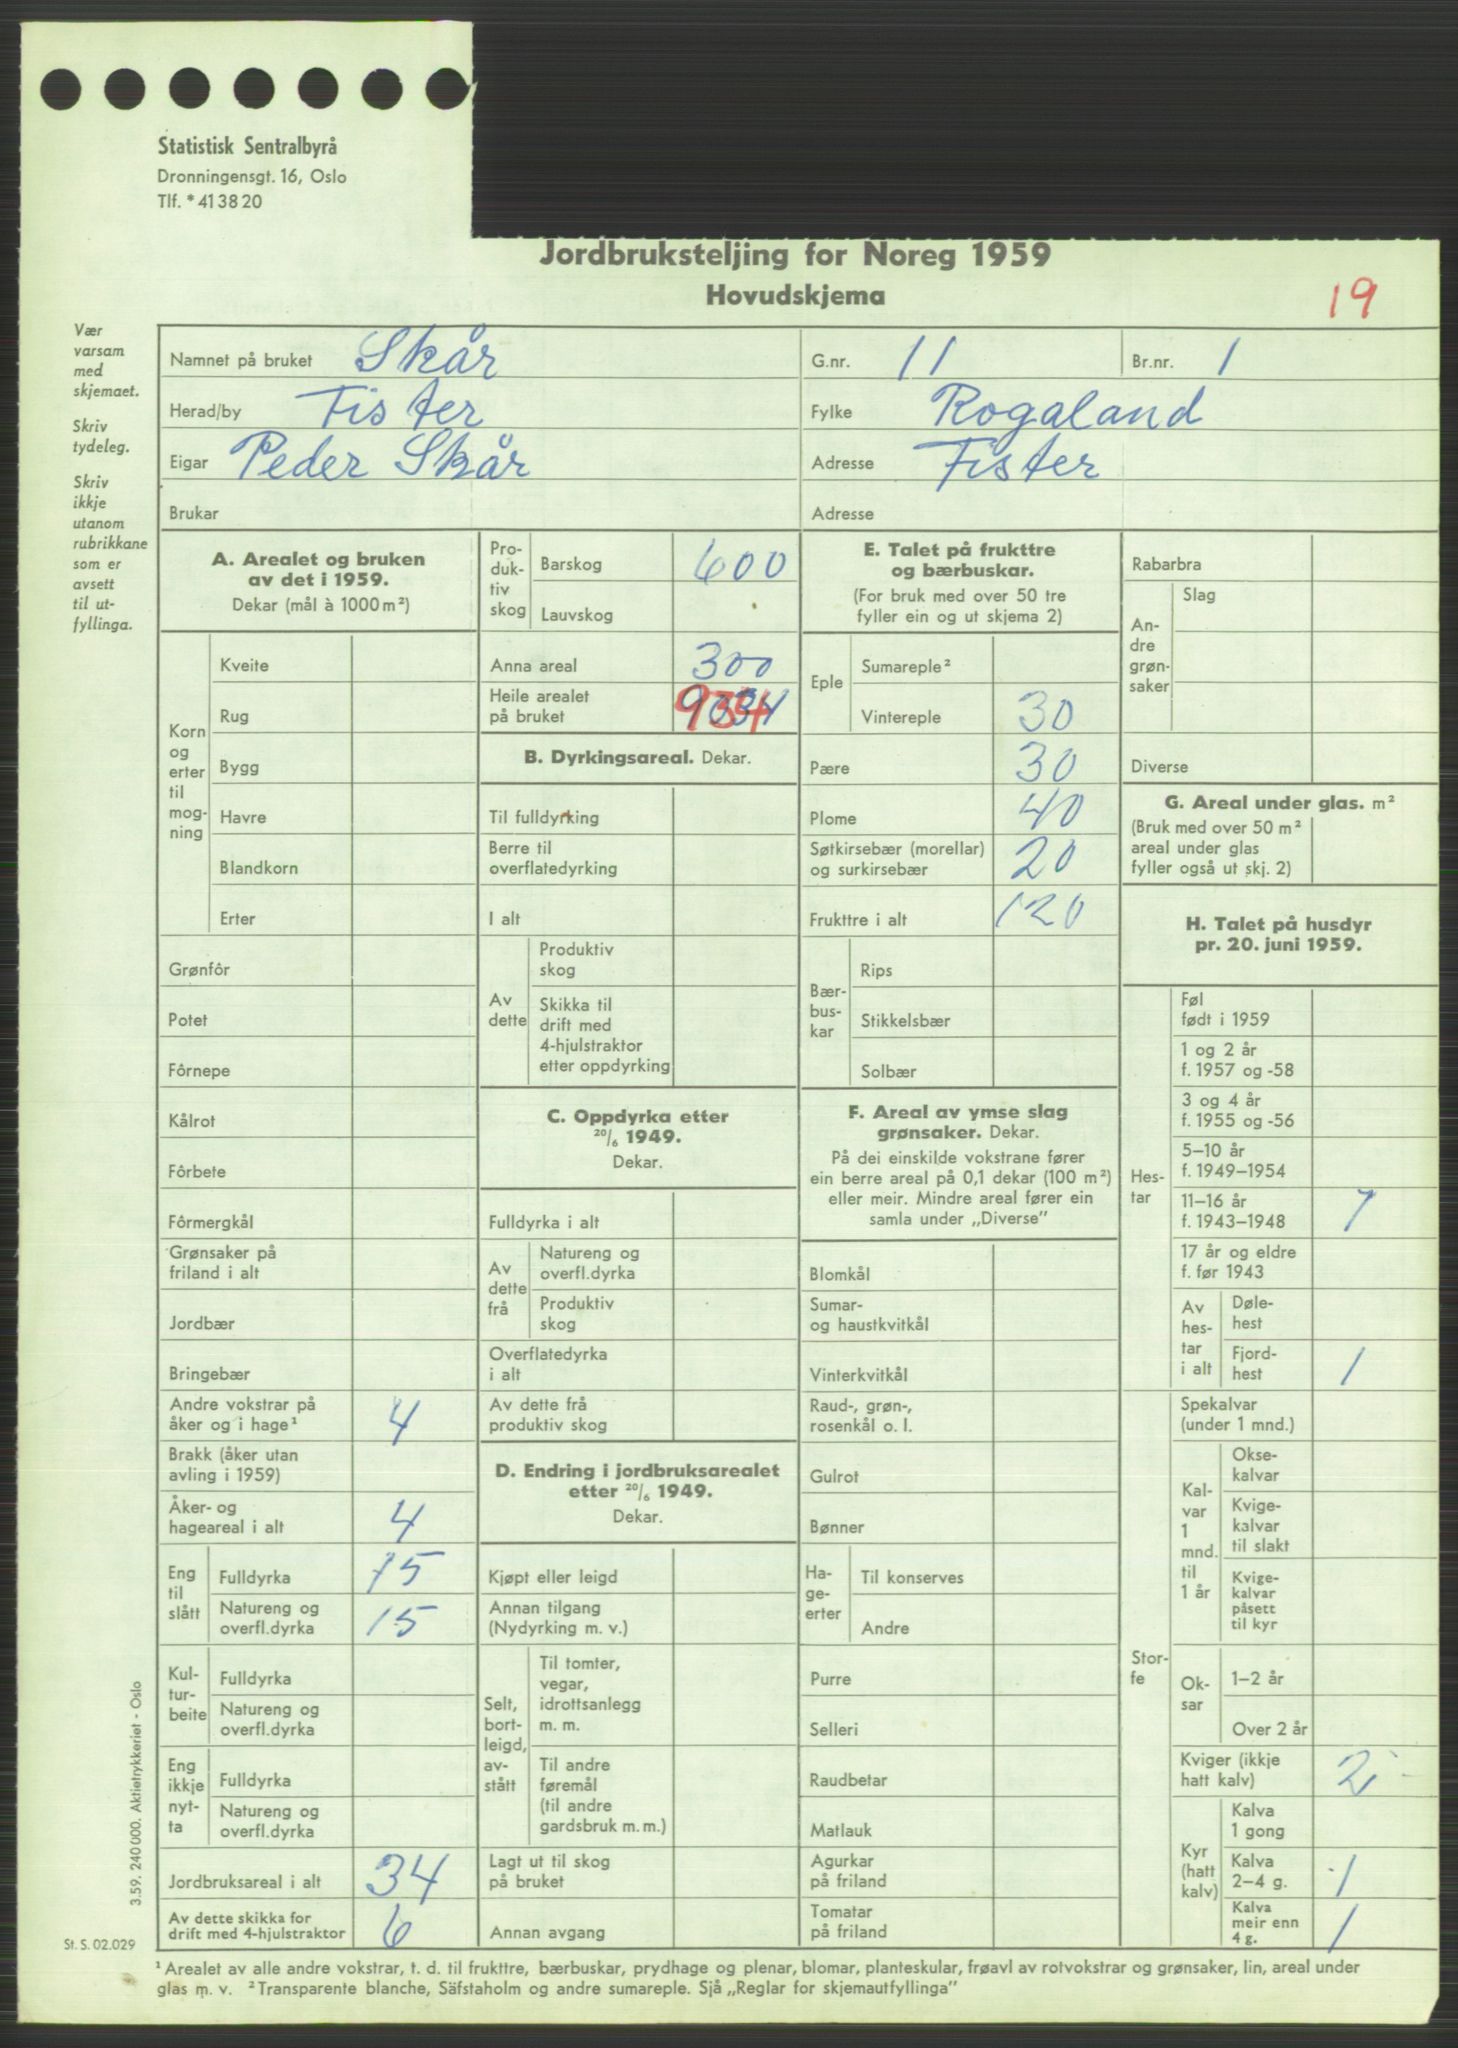 Statistisk Sentralbyrå
Dronningensgt. 16, Oslo
Tlf. * 41 38 20
Jordbruksteljing for Noreg 1959
Hovudskjema
19
Vær
varsam
med
skjemaet.
Skriv
tydeleg.
Skriv
ikkje
utanom
rubrikkane
som er
avsett
til ut-
fyllinga.
Namnet på bruket Skår G.nr. 11 Br.nr. 1
Herad/by Fister Fylke Rogaland
Eigar Peder Skår Adresse Fister
Brukar Adresse
A. Arealet og bruken
av det i 1959.
Dekar (mål à 1000 m²)
Korn
og
erter
til
mog-
ning
Kveite
Rug
Bygg
Havre
Blandkorn
Erter
Grønfôr
Potet
Fôrnepe
Kålrot
Fôrbete
Fôrmergkål
Grønsaker på
friland i alt
Jordbær
Bringebær
Andre vokstrar på
åker og i hage¹ 4
Brakk (åker utan
avling i 1959)
Åker- og
hageareal i alt 4
Eng
til
slått
Fulldyrka 15
Natureng og
overfl.dyrka 15
Kul-
tur-
beite
Fulldyrka
Natureng og
overfl.dyrka
Eng
ikkje
nyt-
ta
Fulldyrka
Natureng og
overfl.dyrka
Jordbruksareal i alt 34
Av dette skikka for
drift med 4-hjulstraktor 6
Pro-
duk-
tiv
skog
Barskog 600
Lauvskog
Anna areal 300
Heile arealet
på bruket 934
B. Dyrkingsareal. Dekar.
Til fulldyrking
Berre til
overflatedyrking
I alt
Av
dette
Produktiv
skog
Skikka til
drift med
4-hjulstraktor
etter oppdyrking
C. Oppdyrka etter
20/6 1949.
Dekar.
Fulldyrka i alt
Av
dette
frå
Natureng og
overfl.dyrka
Produktiv
skog
Overflatedyrka
i alt
Av dette frå
produktiv skog
D. Endring i jordbruksarealet
etter 20/6 1949.
Dekar.
Kjøpt eller leigd
Annan tilgang
(Nydyrking m. v.)
Selt,
bort-
leigd,
av-
stått
Til tomter,
vegar,
idrottsanlegg
m. m.
Til andre
føremål
(til andre
gardsbruk m. m.)
Lagt ut til skog
på bruket
Annan avgang
E. Talet på frukttre
og bærbuskar.
(For bruk med over 50 tre
fyller ein og ut skjema 2)
Eple
Sumareple²
Vintereple 30
Pære 30
Plome 40
Søtkirsebær (morellar)
og surkirsebær 20
Frukttre i alt 120
Bær-
bus-
kar
Rips
Stikkelsbær
Solbær
F. Areal av ymse slag
grønsaker. Dekar.
På dei einskilde vokstrane fører
ein berre areal på 0,1 dekar (100 m²)
eller meir. Mindre areal fører ein
samla under „Diverse”
Blomkål
Sumar-
og haustkvitkål
Vinterkvitkål
Raud-, grøn-,
rosenkål o. l.
Gulrot
Bønner
Ha-
ge-
erter
Til konserves
Andre
Purre
Selleri
Raudbetar
Matlauk
Agurkar
på friland
Tomatar
på friland
Rabarbra
An-
dre
grøn-
saker
Slag
Diverse
G. Areal under glas. m²
(Bruk med over 50 m²
areal under glas
fyller også ut skj. 2)
H. Talet på husdyr
pr. 20. juni 1959.
Hes-
tar
Føl
født i 1959
1 og 2 år
f. 1957 og -58
3 og 4 år
f. 1955 og -56
5–10 år
f. 1949–1954
11–16 år
f. 1943–1948 1
17 år og eldre
f. før 1943
Av
hes-
tar
i alt
Døle-
hest
Fjord-
hest 1
Stor-
fe
Spekalvar
(under 1 mnd.)
Kal-
var
1
mnd.
til
1 år
Okse-
kalvar
Kvige-
kalvar
til slakt
Kvige-
kalvar
påsett
til kyr
Ok-
sar
1–2 år
Over 2 år
Kviger (ikkje
hatt kalv) 2
Kyr
(hatt
kalv)
Kalva
1 gong
Kalva
2–4 g. 1
Kalva
meir enn
4 g. 1
3.59. 240 000. Aktietrykkeriet - Oslo
St. S. 02.029
¹ Arealet av alle andre vokstrar, t. d. til frukttre, bærbuskar, prydhage og plenar, blomar, planteskular, frøavl av rotvokstrar og grønsaker, lin, areal under
glas m. v. ² Transparente blanche, Säfstaholm og andre sumareple. Sjå „Reglar for skjemautfyllinga”